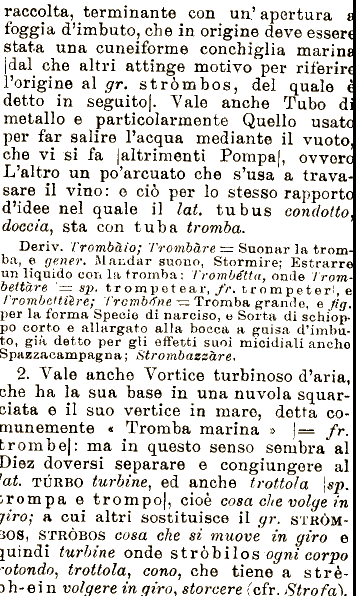 raccolta, terminante con un' apertura a
foggia d'imbuto, che in origine deve essere
stata una cuneiforme conchiglia marina
|dal che altri attinge motivo per riferire
l'origine al gr. stròmbos, del quale è
detto in seguito|. Vale anche Tubo di
metallo e particolarmente Quello usato
per far salire l'acqua mediante il vuoto,
che vi si fa |altrimenti Pompa|, ovvero
L'altro un po'arcuato che s'usa a trava-
sare il vino: e ciò per lo stesso rapporto
d'idee nel quale il lat. tubus condotto,
doccia, sta con tuba tromba.
Deriv. Trombàio; Trombàre = Suonar la trom-
ba, e gener. Mandar suono, Stormire; Estrarre
un liquido con la tromba: Trombétta, onde Trom-
bettàre = sp. trompetear, fr. trompeter:, e
Trombettière; Trombóne = Tromba grande, e fig.
per la forma Specie di narciso, e Sorta di schiop-
po corto e allargato alla bocca a guisa d'imbu-
to, già detto per gli effetti suoi micidiali anche
Spazzacampagna; Strombazzàre.
2. Vale anche Vortice turbinoso d'aria,
che ha la sua base in una nuvola squar-
ciata e il suo vertice in mare, detta co-
munemente « Tromba marina » |= fr.
trombe|: ma in questo senso sembra al
Diez doversi separare e congiungere al
lat. TÚRBO turbine, ed anche trottola |sp.
trompa e trompo|, cioè cosa che volge in
giro; a cui altri sostituisce il gr. STRÒM-
BOS, STRÒBOS cosa che si muove in giro e
quindi turbine onde stròbilos ogni corpo
rotondo, trottola, cono, che tiene a strè-
ph-ein volgere in giro, storcere (cfr. Strofa).